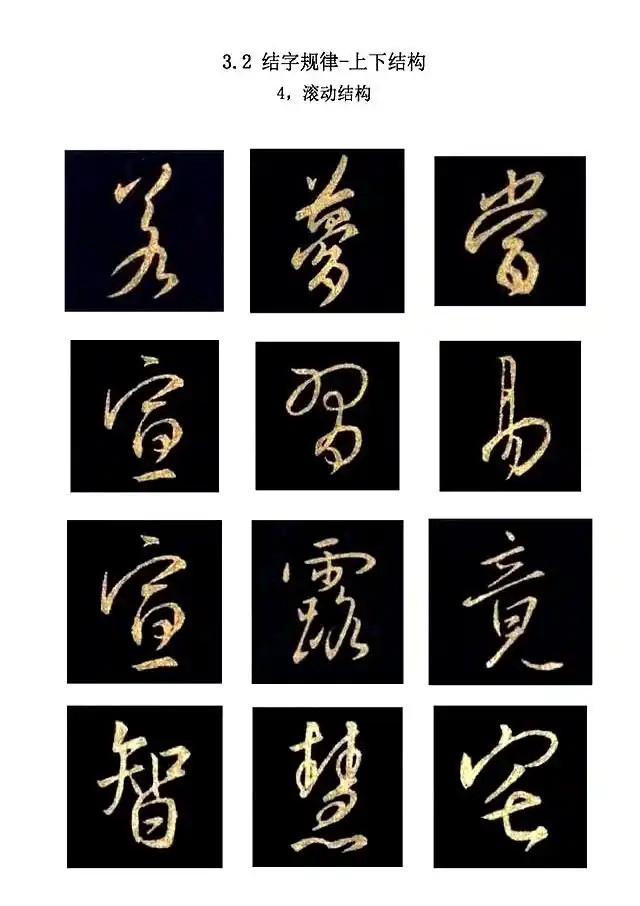 3.2 结字规律-上下结构
4, 滚动结构
若 夢 當
宣 習 易
宣 露 竟
智 慧 宅